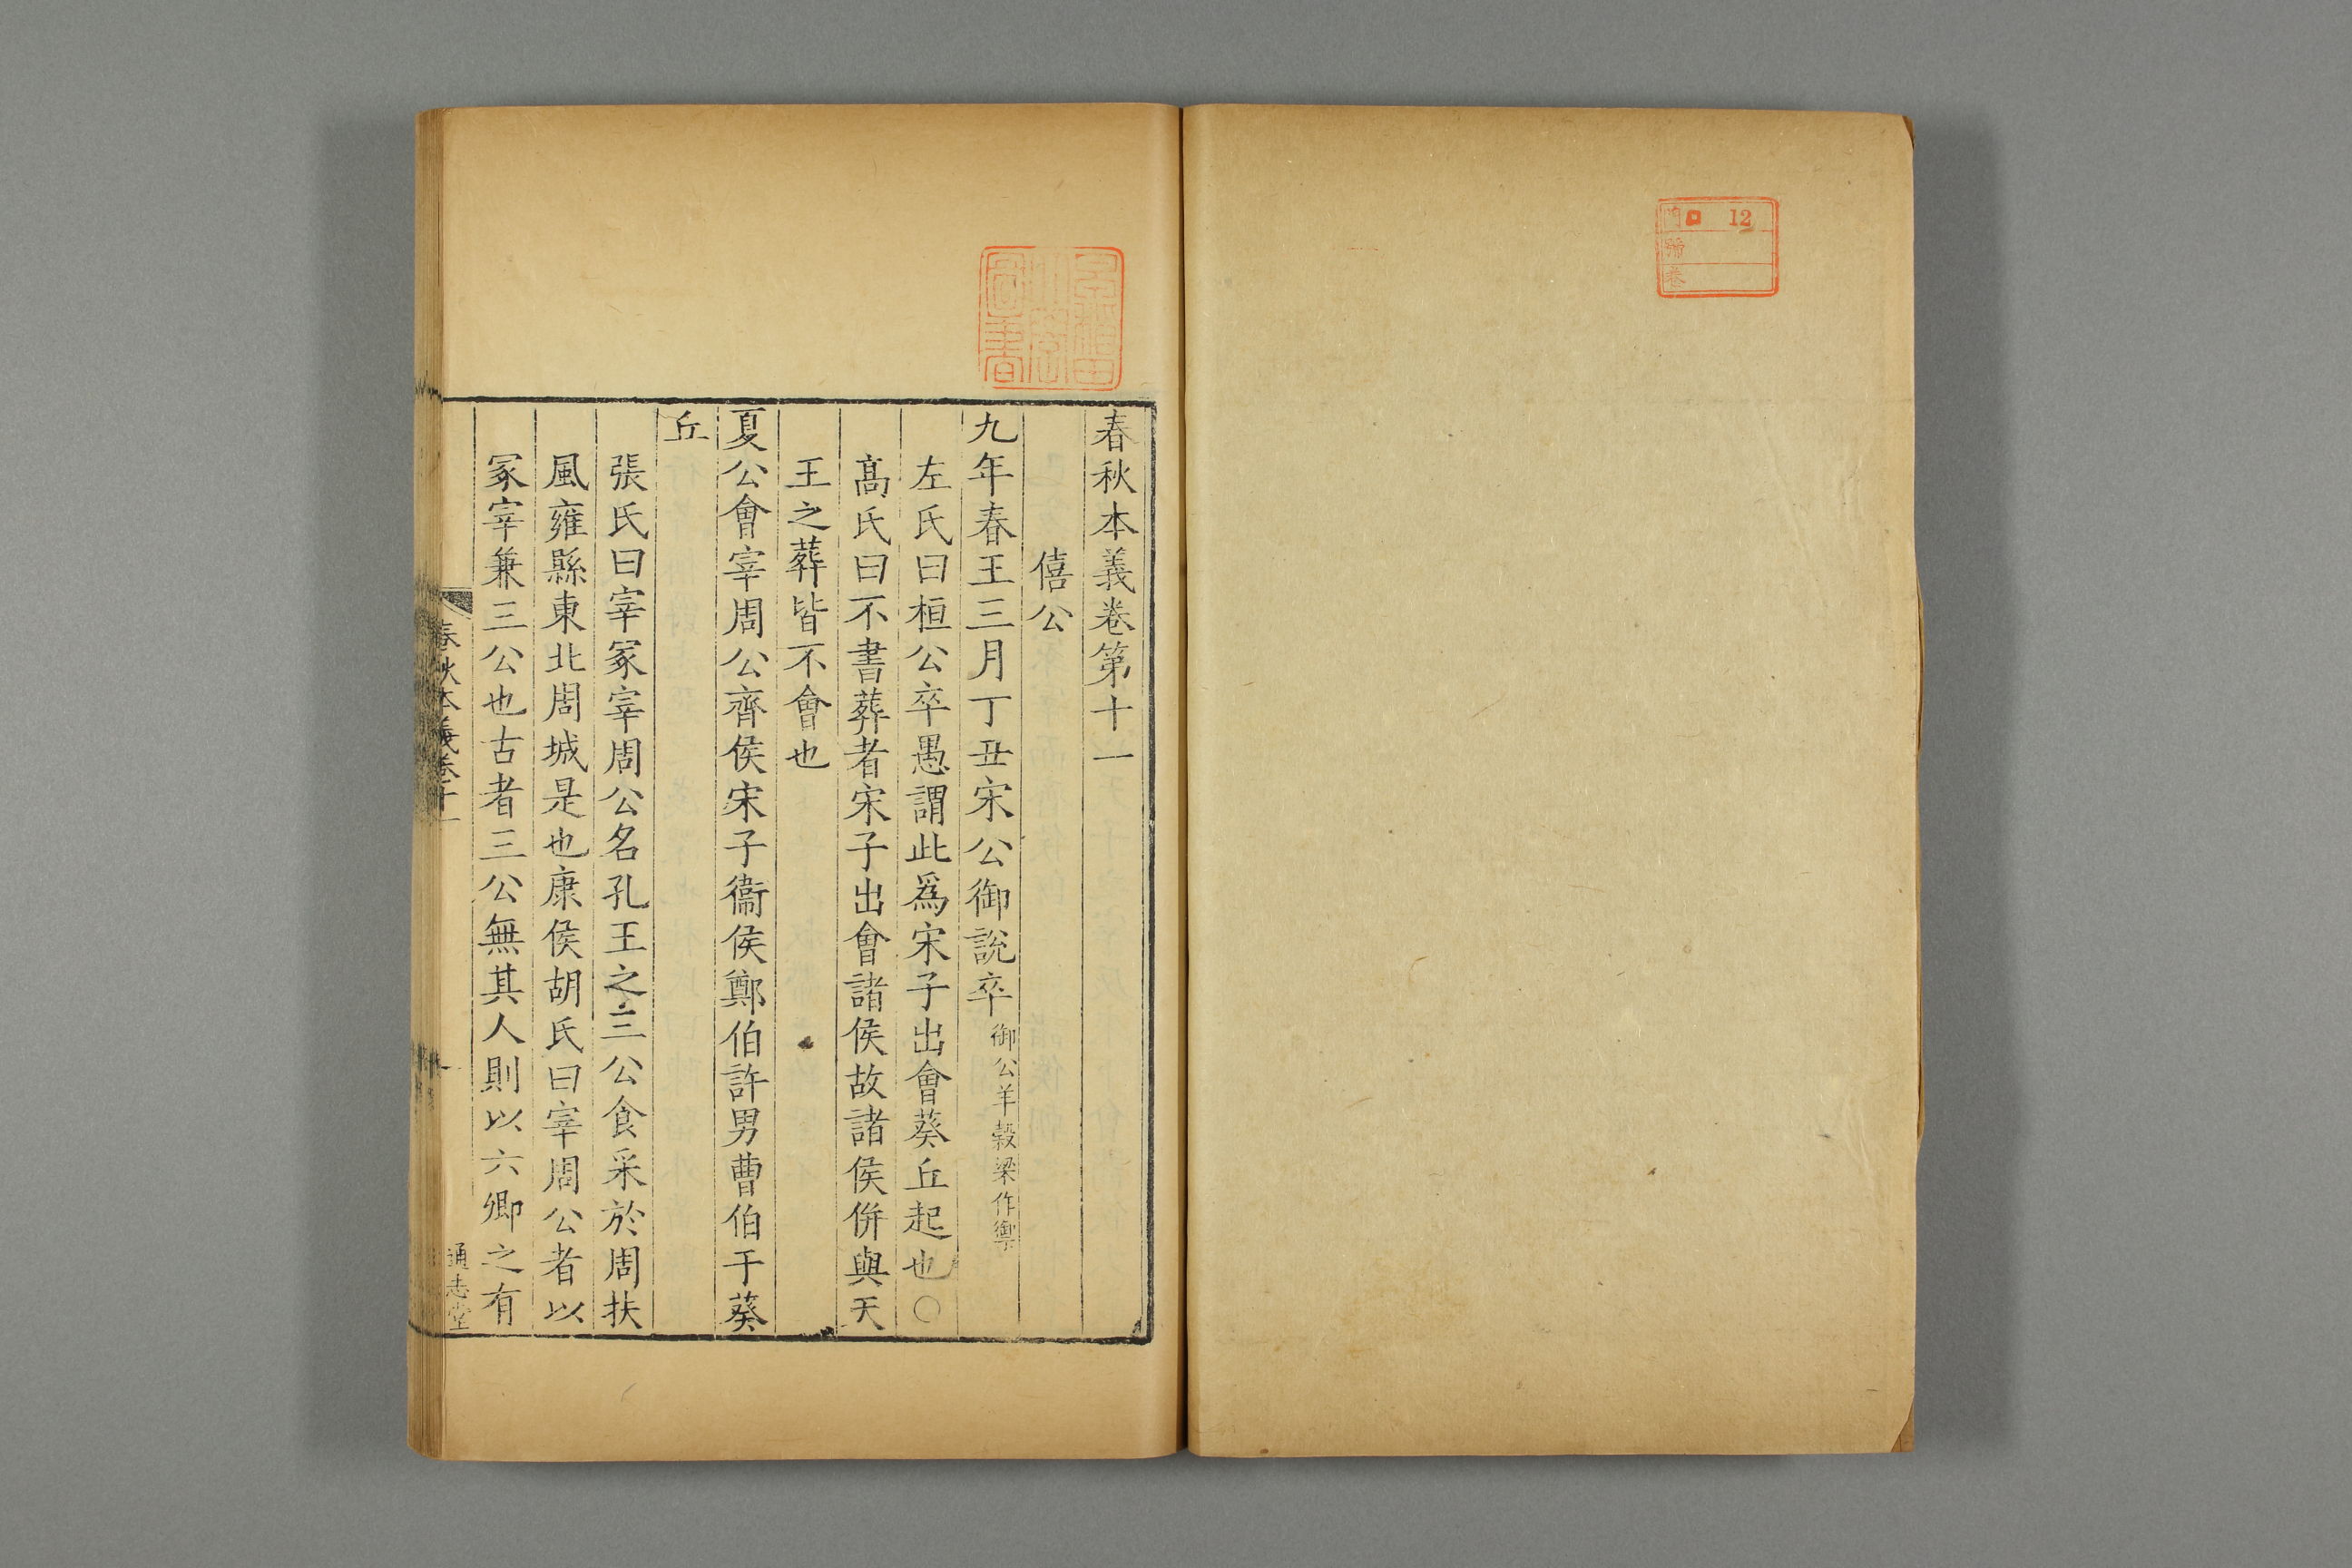 門 12
號
卷
春秋本義卷第十一
僖公
九年春王三月丁丑宋公御說卒御公羊穀梁作禦
左氏曰桓公卒愚謂此爲宋子出會葵丘起也○
髙氏曰不書葬者宋子出會諸侯故諸侯併與天
王之葬皆不會也
夏公會宰周公齊侯宋子衞侯鄭伯許男曹伯于葵
丘
張氏曰宰冢宰周公名孔王之三公食采於周扶
風雍縣東北周城是也康侯胡氏曰宰周公者以
冢宰兼三公也古者三公無其人則以六卿之有
春秋本義卷十一
通志堂